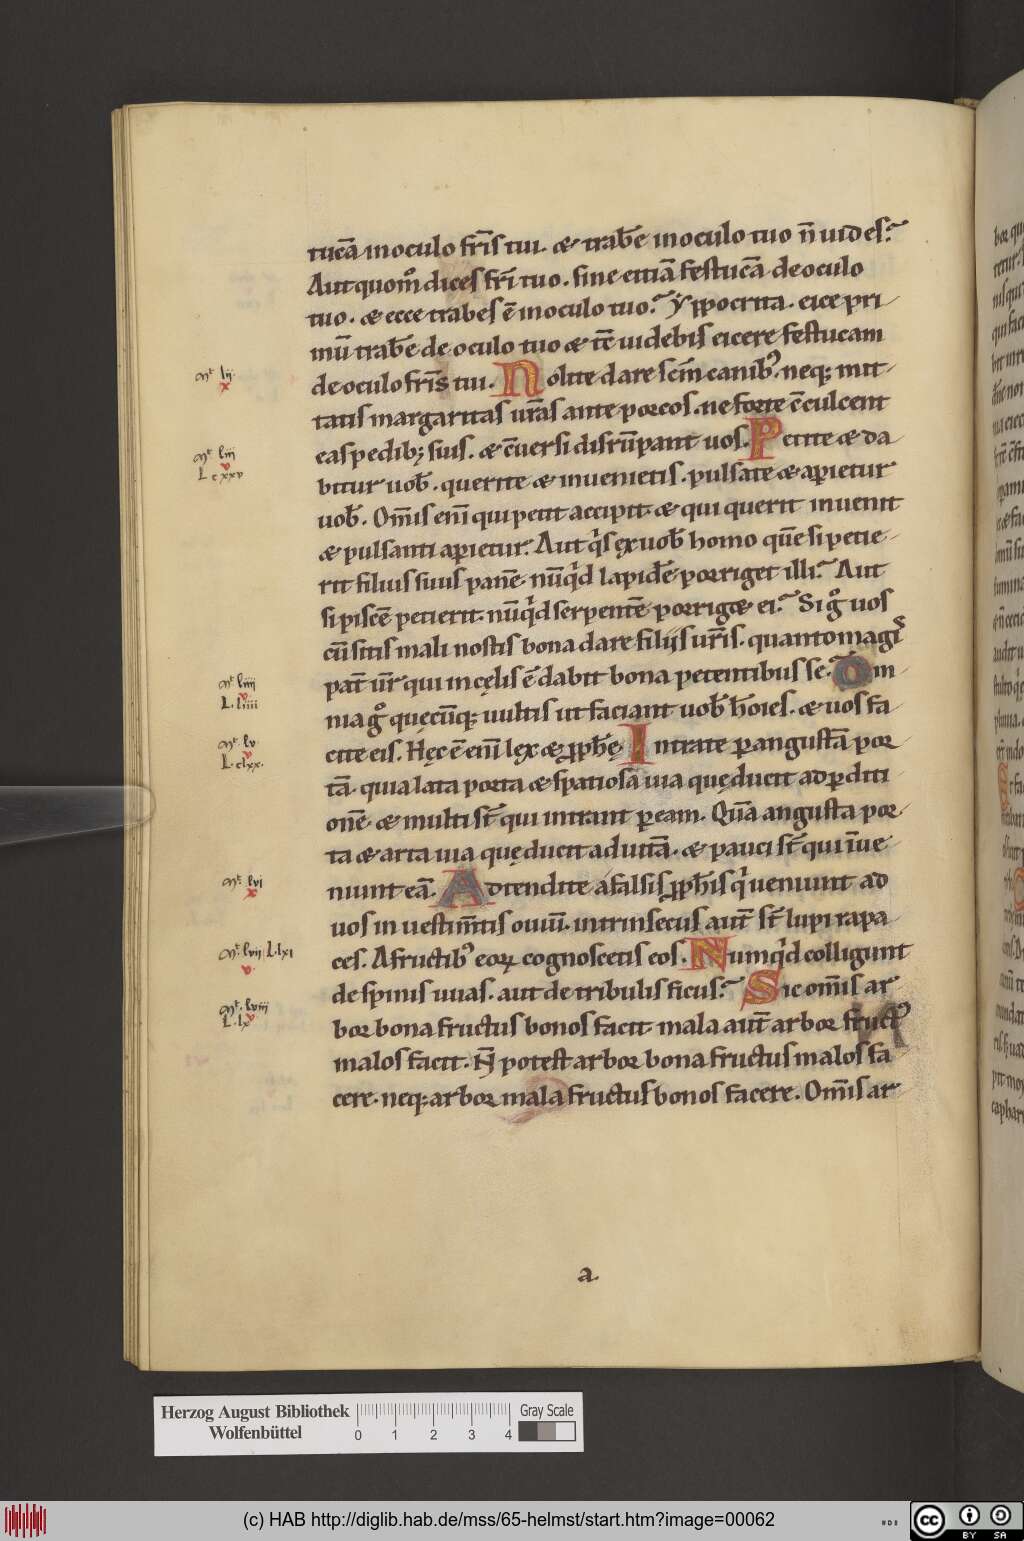 tucā in oculo fr̄is tui. & trabē in oculo tuo n̄ uides?
Aut quom̊ dices fr̄i tuo. sine eitiā festucā de oculo
tuo. & ecce trabes ē in oculo tuo? yppocrita. eice pri
mū trabē de oculo tuo & tc̄ uidebis eicere festucam
de oculo fr̄is tui. Nolite dare sc̄m canib; neq; mit
tatis margaritas ur̄as ante porcos. ne forte c̄culcent
eas pedib; suis. & c̄uersi disrūpant uos. Petite & da
bitur uob̄. querite & inuenietis. pulsate & aperietur
uob̄. Om̄is eni̅ qui petit accipit & qui querit inuenit
& pulsanti aperietur. Aut q̇s ęx uob̄ homo quē si petie
rit filius suus panē. nūq̇d lapidē porriget illi? Aut
si piscē petierit. nūq̇d serpentē porrig& ei? Si g̊ uos
cū sitis mali nostis bona dare filiis ur̄is. quanto magis
pat̄ ur̄ qui in cęlis ē dabit bona petentibus se? Om
nia g̊ quęcūq; uultis ut faciant uob̄ hōies. & uos fa
cite eis. Hęc ē eni̅ lęx & ꝓph̄ę. Intrate ꝑ angustā por
tā. quia lata porta & spatiosa uia quę ducit ad ꝑditi
onē. & multi st̄ qui intrant ꝑ eam. Quā angusta por
ta & arta uia quę ducit ad uitā. & pauci st̄ qui īue
niunt eā. Adtendite a falsis ꝓph̄is q̇ ueniunt ad
uos in uestim̄tis ouiū. intrinsecus aut̄ st̄ lupi rapa
ces. A fructib; eoꝝ cognoscetis eos. Numq̇d colligunt
de spinis uuas. aut de tribulis ficus? Sic om̄is ar
bor bona fructus bonos facit. mala aut̄ arbor fruct᾽
malos facit. N̄ potest arbor bona fructus malos fa
cere. neq; arbor mala fructus bonos facere. Om̄is ar
Mt lii
x
Mt liii
v
L cxxv
Mt liiii
v
L. liiii
Mt. lv
v
L. clxx.
Mt. lvi
x
Mt. lvii L. lxi
v
Mt. lviii
v
L. lx
a.
Herzog August Bibliothek
Wolfenbüttel
0 1 2 3 4
Gray Scale
(c) HAB http://diglib.hab.de/mss/65-helmst/start.htm?image=00062
cc BY SA